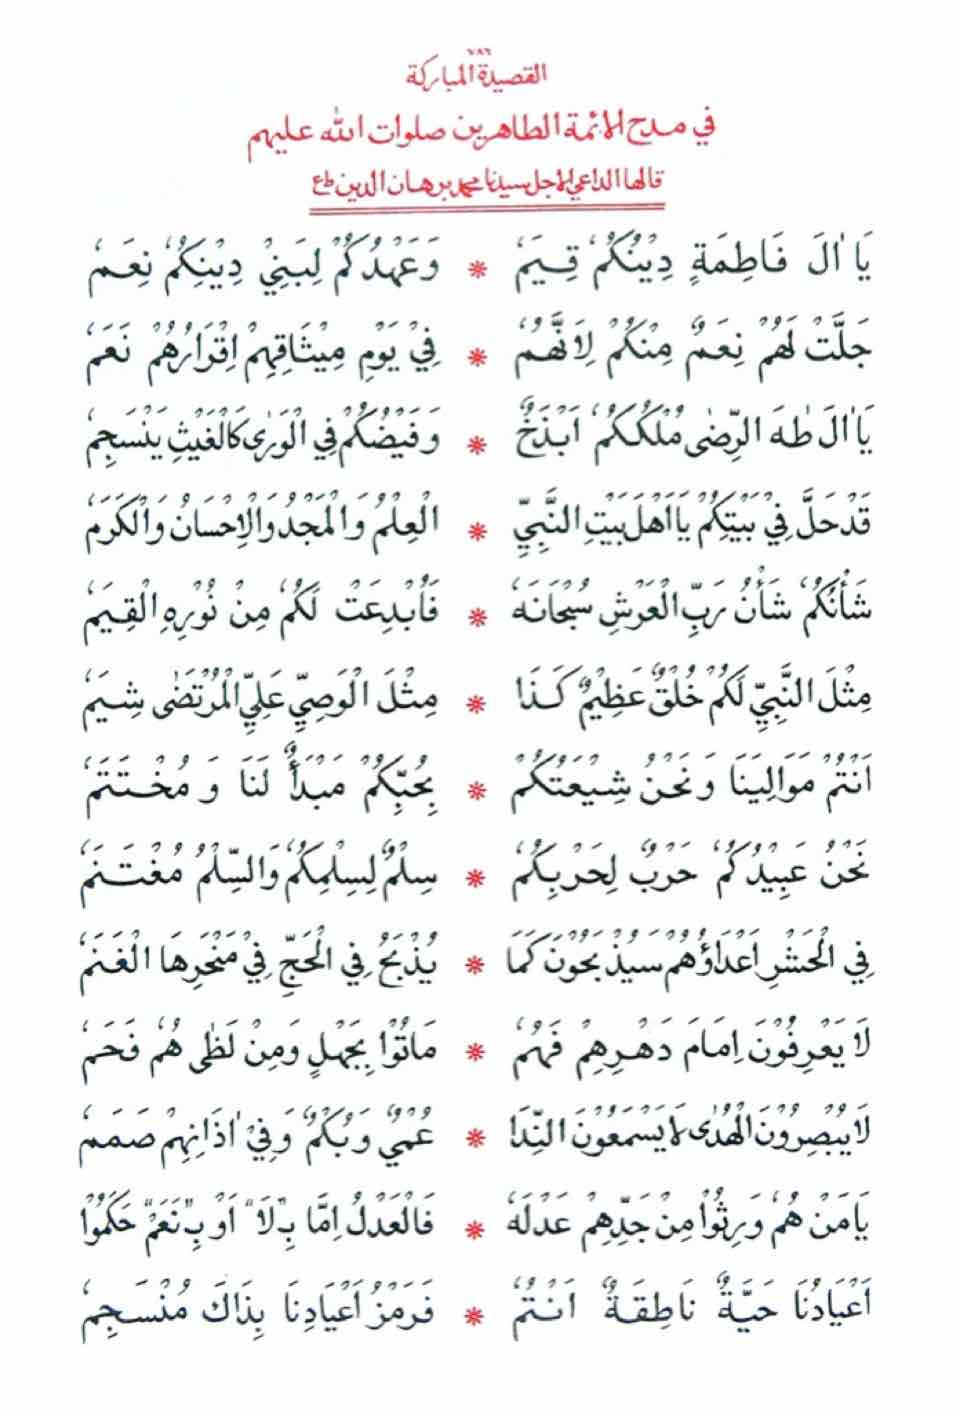 ٧٨٦
القصيدة المباركة
في مدح الائمة الطاهرين صلوات الله عليهم
قالها الداعي الاجل سيدنا محمد برهان الدين طع
يَا اٰلَ فَاطِمَةٍ دِيْنُكُمْ قِيَمُ * وَعَهْدُكُمْ لِبَنِيْ دِيْنِكُمْ نِعَمُ
جَلَّتْ لَهُمْ نِعَمٌ مِنْكُمْ لِاَنَّهُمُ * فِيْ يَوْمِ مِيْثَاقِهِمْ اِقْرَارُهُمْ نَعَمُ
يَا اٰلَ طٰهَ الرِّضٰى مُلْكُكُمْ اَبْذَخٌ * وَفَيْضُكُمْ فِي الْوَرٰى كَالْغَيْثِ يَنْسَجِمُ
قَدْ حَلَّ فِيْ بَيْتِكُمْ يَا اَهْلَ بَيْتِ النَّبِيِّ * الْعِلْمُ وَالْمَجْدُ وَالْاِحْسَانُ وَالْكَرَمُ
شَأْنُكُمْ شَأْنُ رَبِّ الْعَرْشِ سُبْحَانَهُ * فَاُبْدِعَتْ لَكُمْ مِنْ نُوْرِهِ الْقِيَمُ
مِثْلَ النَّبِيِّ لَكُمْ خُلْقٌ عَظِيْمٌ كَذَا * مِثْلَ الْوَصِيِّ عَلِيِّ الْمُرْتَضٰى شِيَمُ
اَنْتُمْ مَوَالِيْنَا وَنَحْنُ شِيْعَتُكُمْ * بِحُبِّكُمْ مَبْدَأٌ لَنَا وَمُخْتَتَمُ
نَحْنُ عَبِيْدُكُمْ حَرْبٌ لِحَرْبِكُمْ * سِلْمٌ لِسِلْمِكُمْ وَالسِّلْمُ مُغْتَنَمُ
فِي الْحَشْرِ اَعْدَاؤُهُمْ سَيُذْبَحُوْنَ كَمَا * يُذْبَحُ فِي الْحَجِّ فِيْ مَنْحَرِهَا الْغَنَمُ
لَا يَعْرِفُوْنَ اِمَامَ دَهْرِهِمْ فَهُمُ * مَاتُوْا بِجَهْلٍ وَمِنْ لَظٰى هُمْ فَحَمُ
لَا يُبْصِرُوْنَ الْهُدٰى لَا يَسْمَعُوْنَ النِّدَا * عُمْيٌ وَبُكْمٌ وَفِيْ اٰذَانِهِمْ صَمَمُ
يَا مَنْ هُمْ وَرِثُوْا مِنْ جَدِّهِمْ عَدْلَهُ * فَالْعَدْلُ اِمَّا بِـ"لَا" اَوْ بِـ"نَعَمْ" حَكَمُوْا
اَعْيَادُنَا حَيَّةٌ نَاطِقَةٌ اَنْتُمُ * فَرَمْزُ اَعْيَادِنَا بِذَاكَ مُنْسَجِمُ